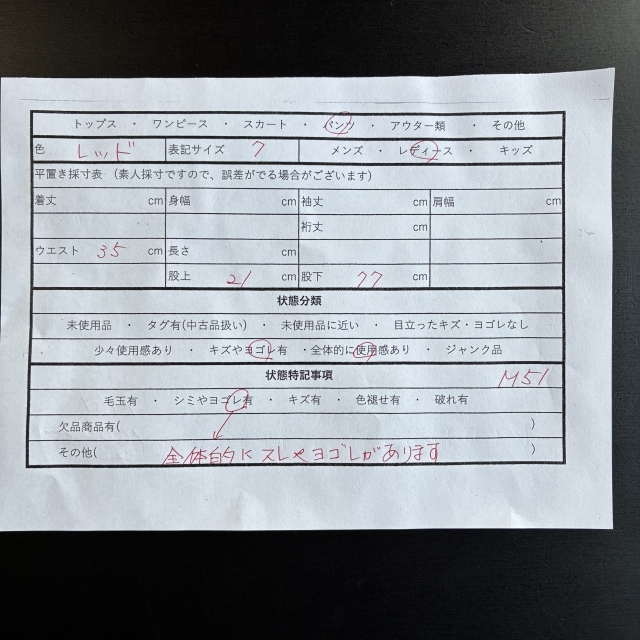 トップス ・ ワンピース ・ スカート ・ パンツ ・ アウター類 ・ その他
色 レッド 表記サイズ 7 メンズ ・ レディース ・ キッズ
平置き採寸表 (素人採寸ですので、誤差がでる場合がございます)
着丈 cm 身幅 cm 袖丈 cm 肩幅 cm
裄丈 cm
ウエスト 35 cm 長さ cm
股上 21 cm 股下 77 cm
状態分類
未使用品 ・ タグ有(中古品扱い) ・ 未使用品に近い ・ 目立ったキズ・ヨゴレなし
少々使用感あり ・ キズやヨゴレ有 ・全体的に使用感あり ・ ジャンク品
状態特記事項 M51
毛玉有 ・ シミやヨゴレ有 ・ キズ有 ・ 色褪せ有 ・ 破れ有
欠品商品有( )
その他( 全体的にスレやヨゴレがあります )